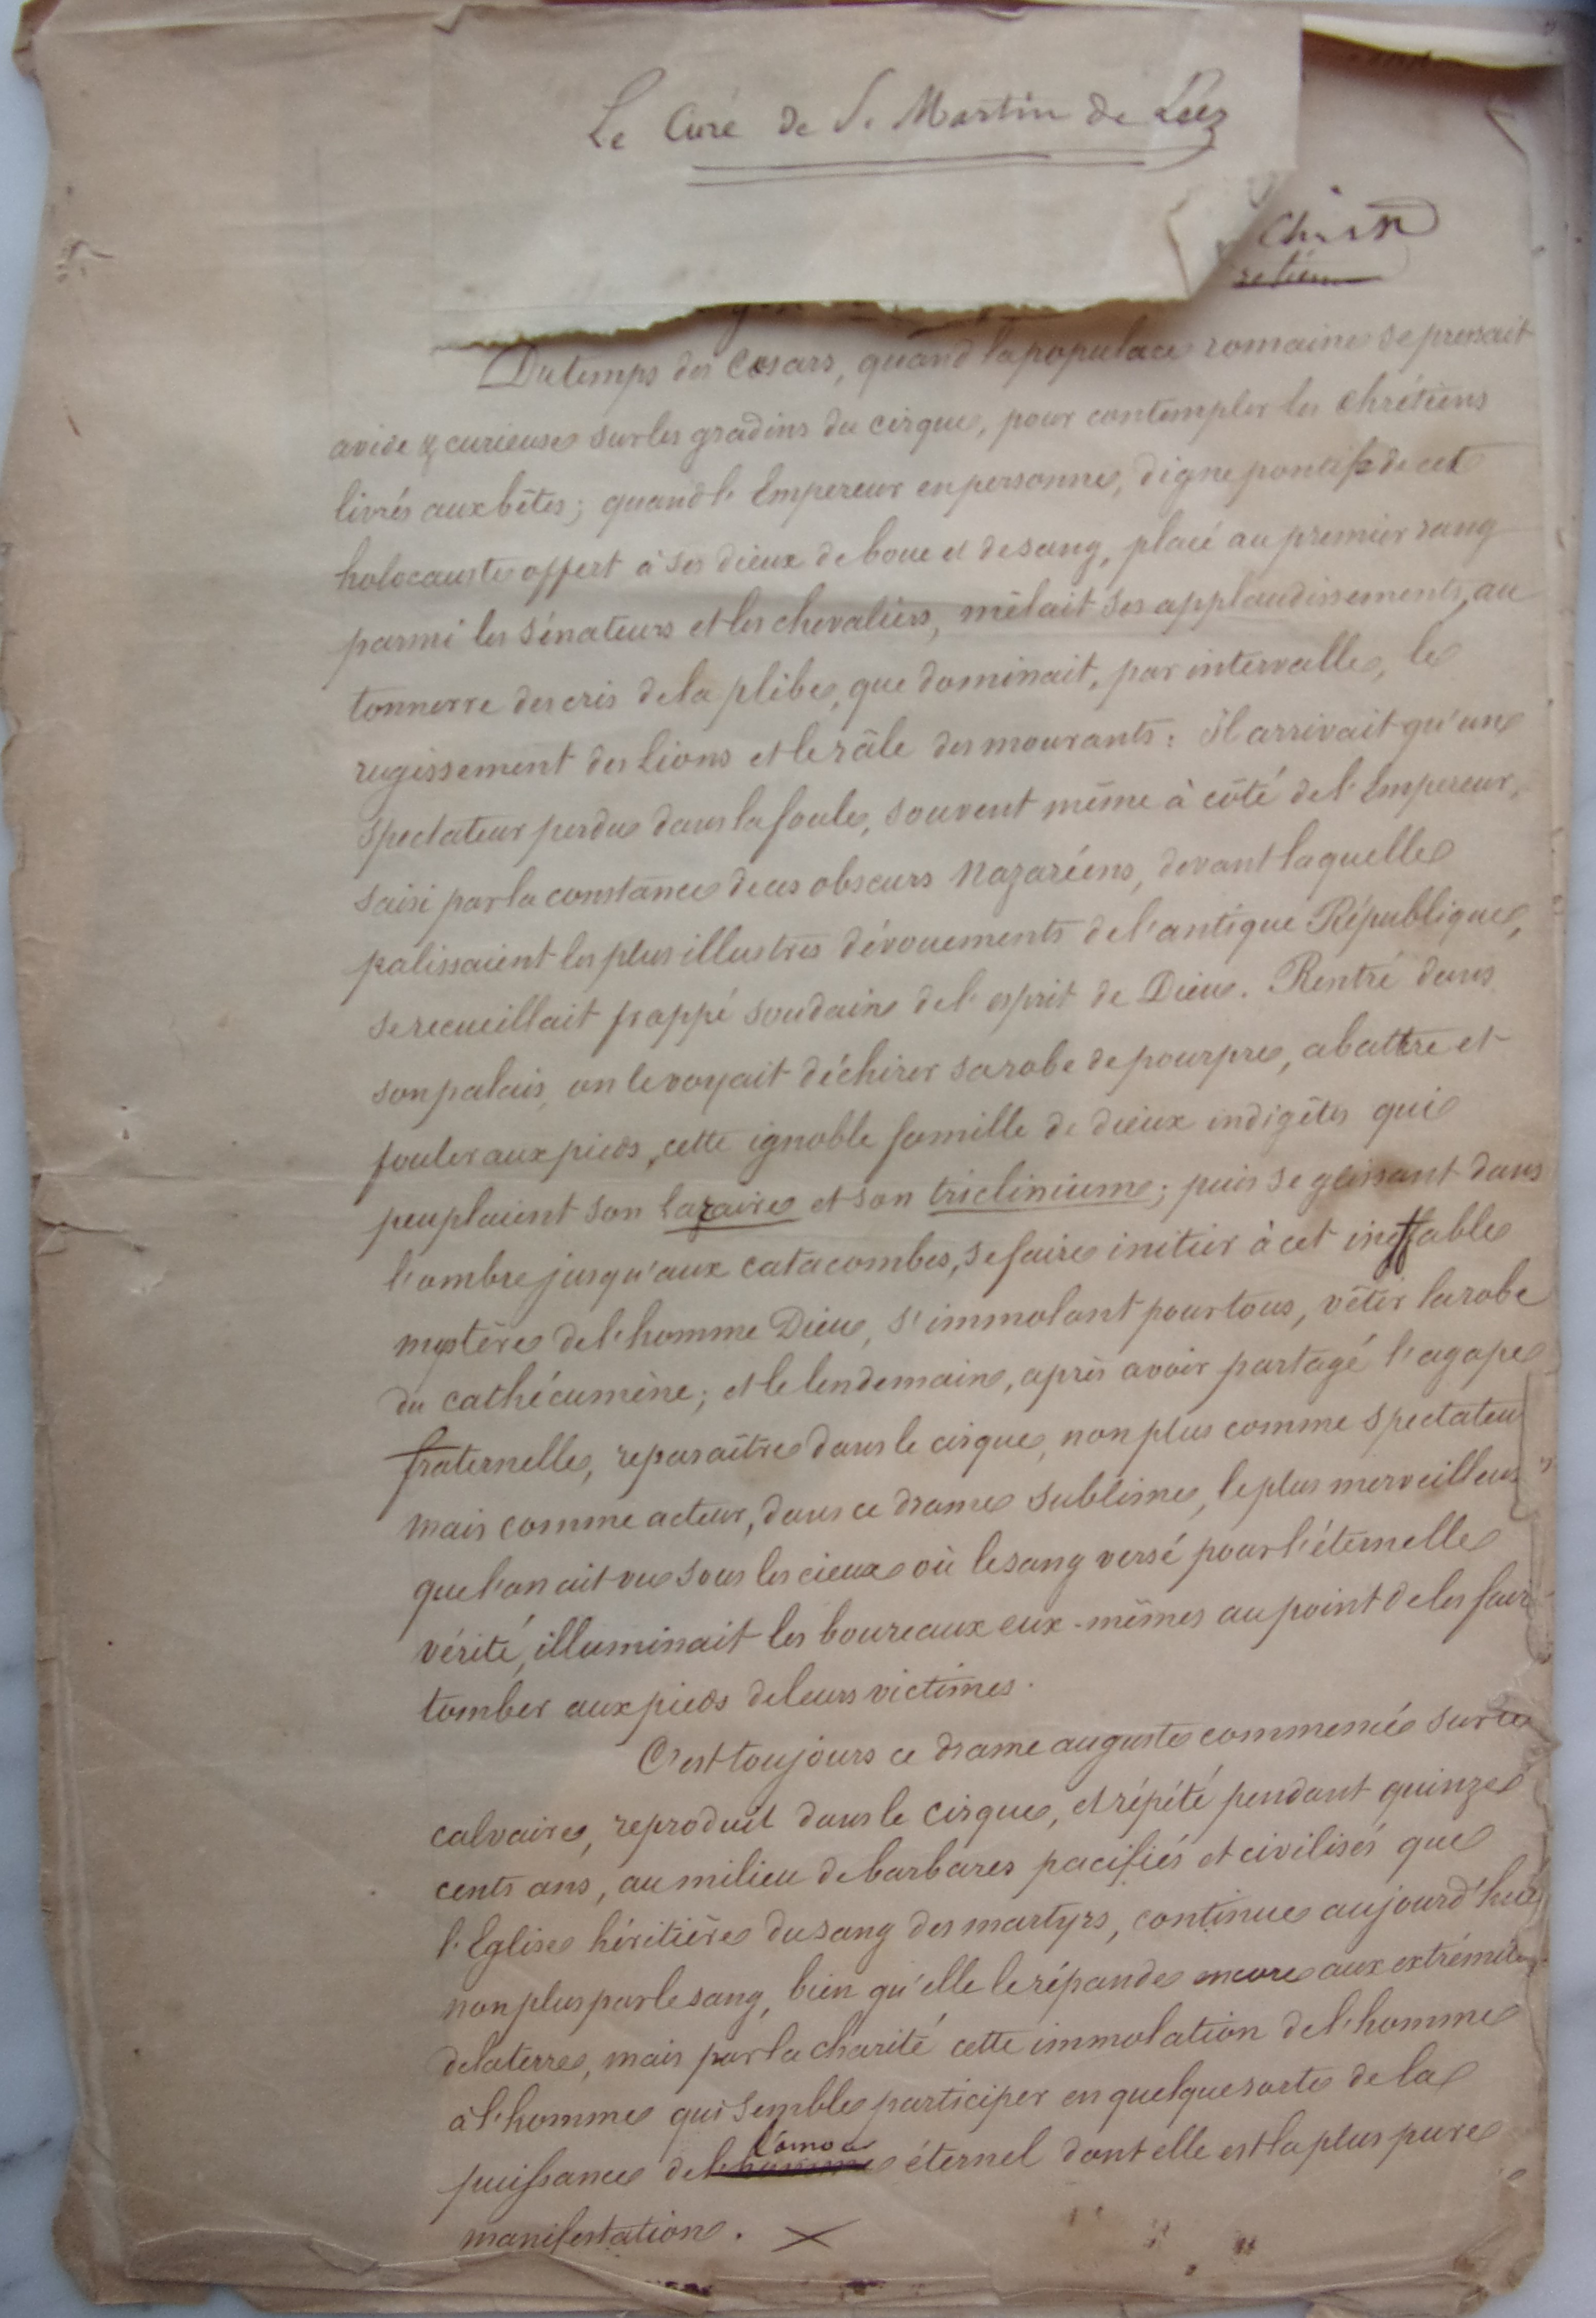 Le Curé de S. Martin de Léez
Du temps des Cesars, quand la populace romaine se pressait
avide & curieuse sur les gradins du cirque, pour contempler les chrétiens
livrés aux bêtes; quand l'Empereur en personne, digne pontife de cet
holocauste offert à ses dieux de boue et de sang, placé au premier rang
parmi les sénateurs et les chevaliers, mêlait ses applaudissements, au
tonnerre des cris de la plèbe, que dominait, par intervalle, le
rugissement des lions et le râle des mourants: il arrivait qu'un
spectateur perdu dans la foule, souvent même à côté de l'Empereur,
saisi par la constance de ces obscurs Nazaréens, devant laquelle
palissaient les plus illustres dévouements de l'antique République,
se recueillait frappé soudain de l'esprit de Dieu. Rentré dans
son palais, on le voyait déchirer sa robe de pourpre, abattre et
fouler aux pieds, cette ignoble famille de dieux indigètes qui
peuplaient son laraire et son triclinium; puis se glissant dans
l'ombre jusqu'aux catacombes, se faire initier à cet ineffable
mystère de l'homme Dieu, s'immolant pour tous, vêtir la robe
du cathécumène; et le lendemain, après avoir partagé l'agape
fraternelle, reparaître dans le cirque, non plus comme spectateu
mais comme acteur, dans ce drame sublime, le plus merveilleux
que l'on ait vu sous les cieux où le sang versé pour l'éternelle
vérité, illuminait les boureaux eux-mêmes au point de les fair
tomber aux pieds de leurs victimes.
C'est toujours ce drame auguste commencé sur le
calvaire, reproduit dans le cirque, et répété pendant quinze
cents ans, au milieu de barbares pacifiés et civilisés que
l'Eglise héritière du sang des martyrs, continue aujourd'hui
non plus par le sang, bien qu'elle le répande encore aux extrémités
de la terre, mais par la charité cette immolation de l'homme
à l'homme qui semble participer en quelque sorte de la
l'amour
puissance de l'homme éternel dont elle est la plus pure
manifestation.